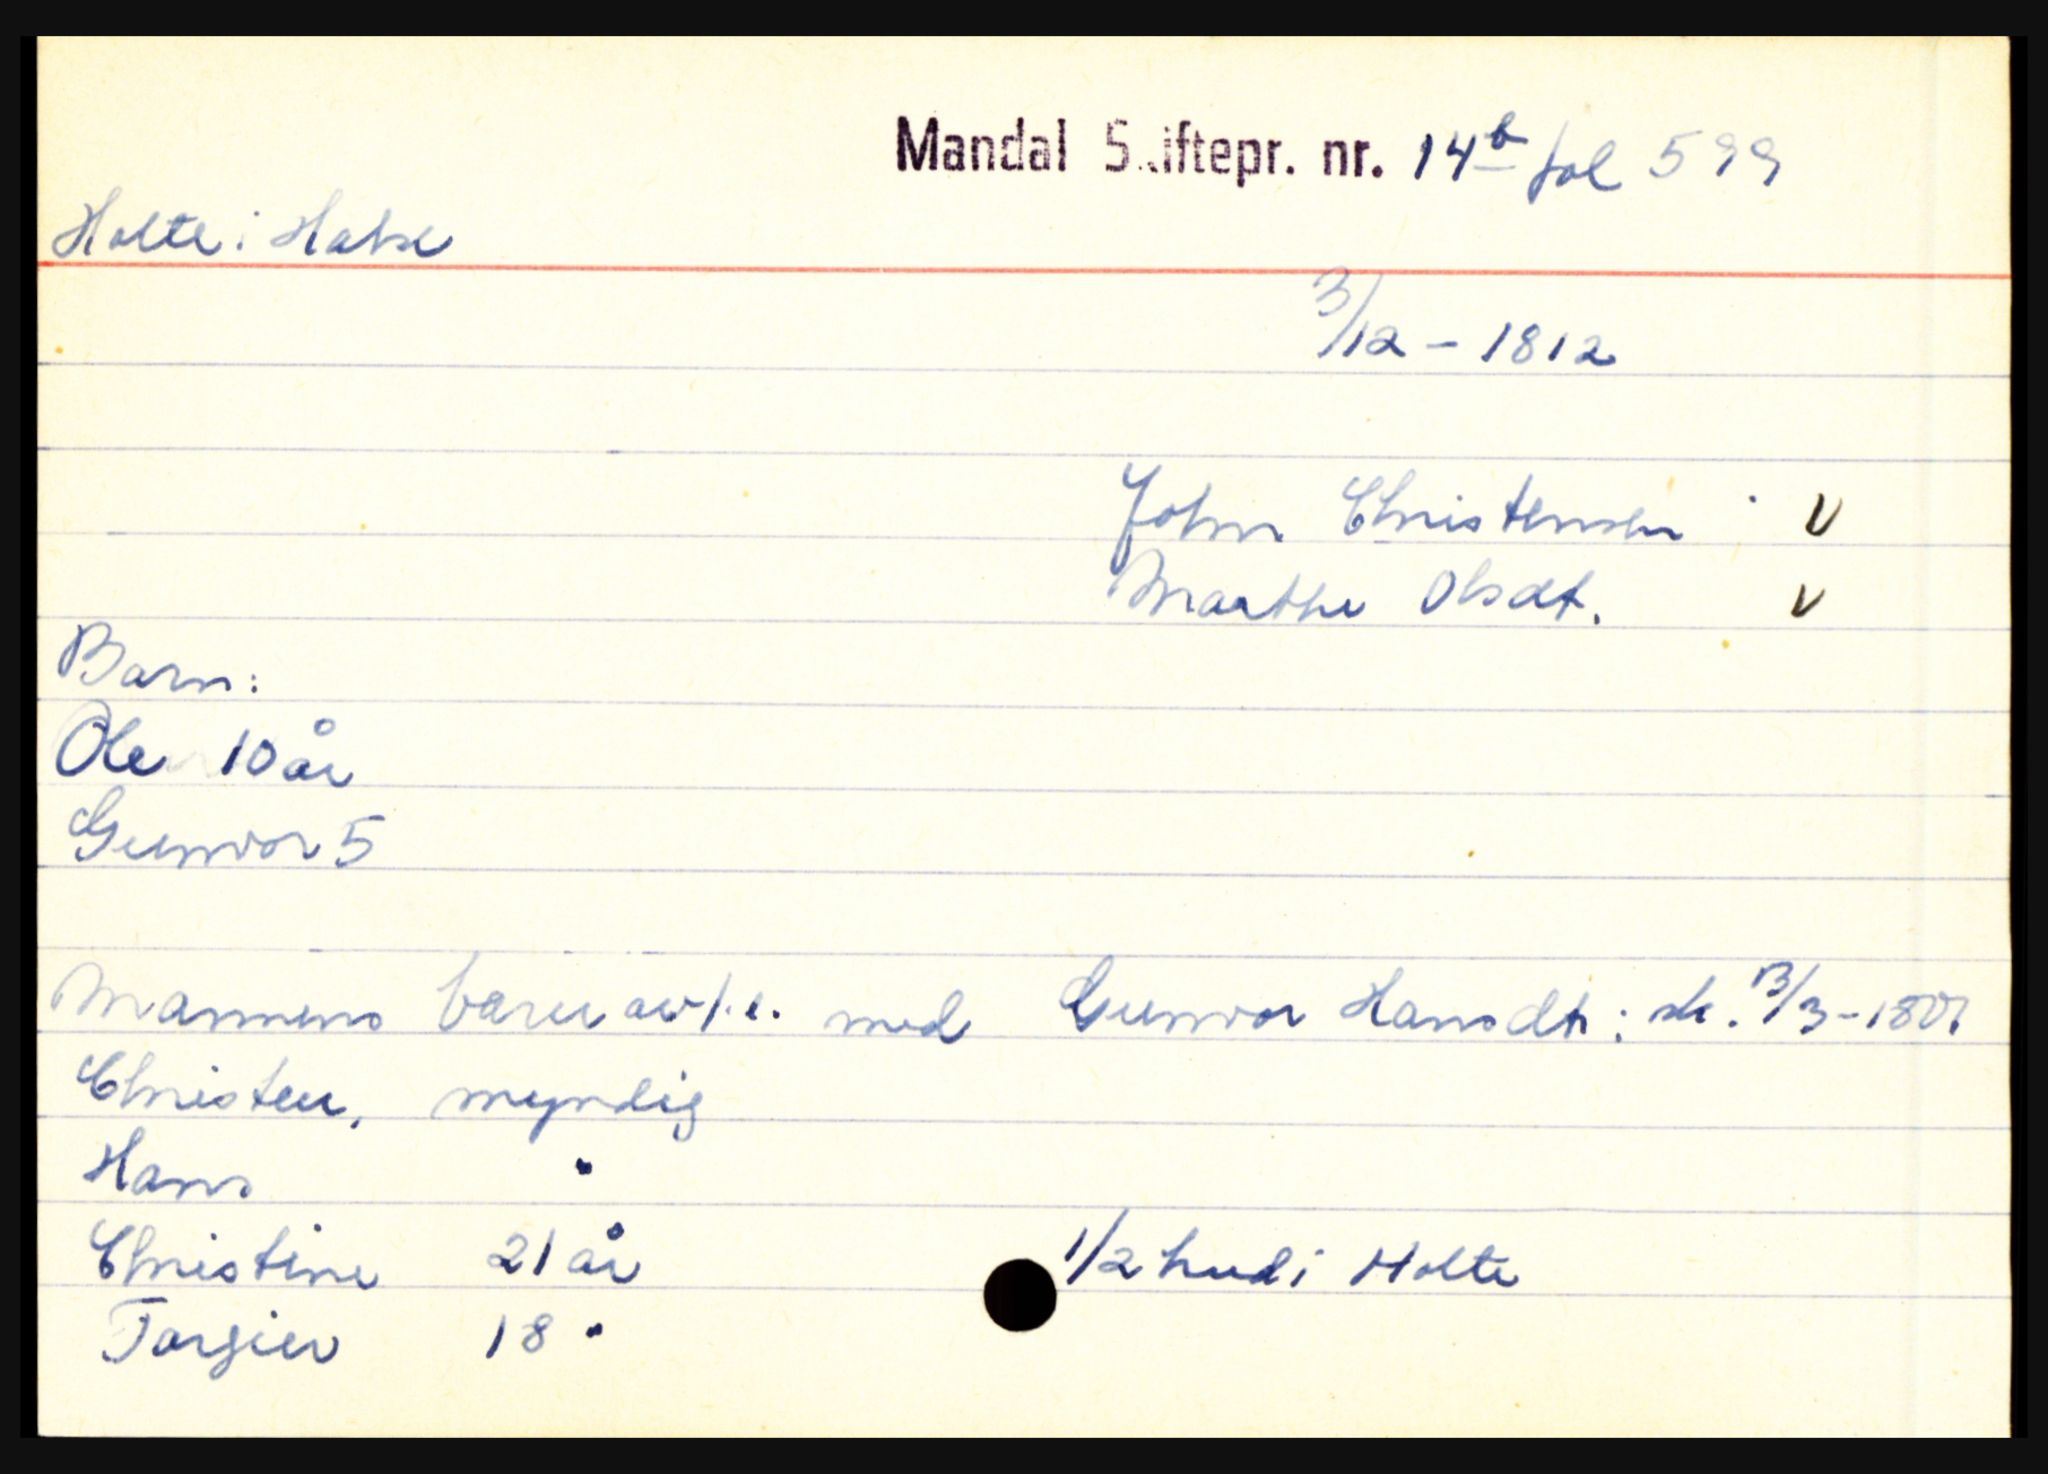 Mandal Skiftepr. nr. 14b fol 599
Holte i Halse
3/12 - 1812
John Christensen V
Marthe Olsdt. V
Barn:
Ole 10 år
Gunvor 5
Mannens barn av 1.e. med Gunvor Hansdt; sk. 13/3-1801
Christen, myndig
Hans "
Christine 21 år 1/2 hud i Holte
Torgier 18 "